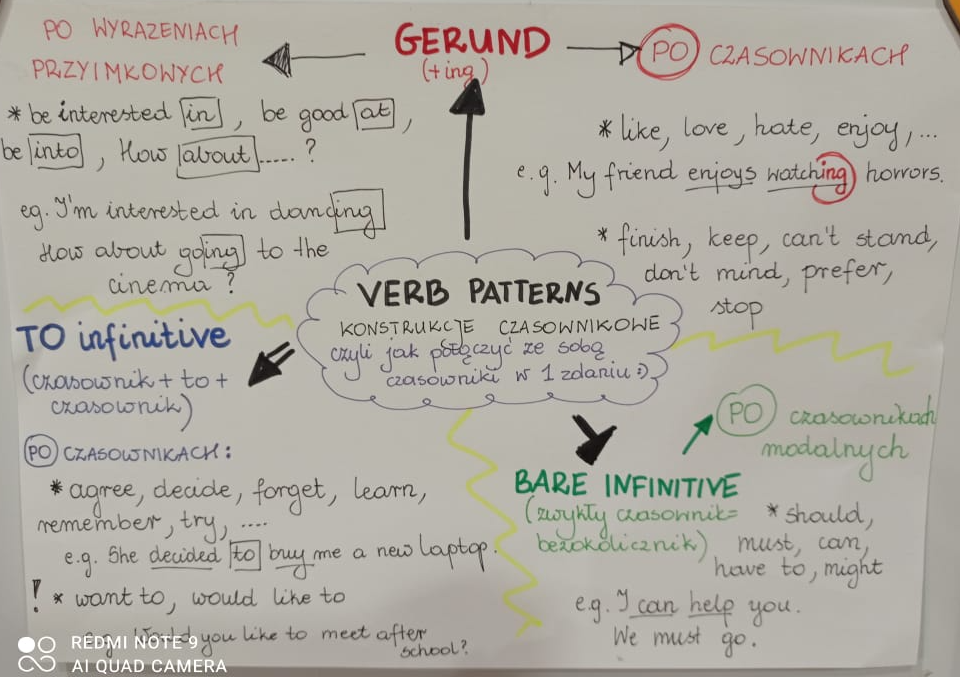 GERUND
(+ing)
PO WYRAŻENIACH
PRZYIMKOWYCH
* be interested in, be good at,
be into, How about ..... ?
eg. I'm interested in dancing
How about going to the
cinema?
PO CZASOWNIKACH
* like, love, hate, enjoy, ...
e.g. My friend enjoys watching horrors.
* finish, keep, can't stand,
don't mind, prefer,
stop
VERB PATTERNS
KONSTRUKCJE CZASOWNIKOWE
czyli jak połączyć ze sobą
czasowniki w 1 zdaniu :)
TO infinitive
(czasownik + to +
czasownik)
PO CZASOWNIKACH:
* agree, decide, forget, learn,
remember, try, ....
e.g. She decided to buy me a new laptop.
! * want to, would like to
e.g. Would you like to meet after
school?
BARE INFINITIVE
(zwykły czasownik=
bezokolicznik)
PO czasownikach
modalnych
* should,
must, can,
have to, might
e.g. I can help you.
We must go.
REDMI NOTE 9
AI QUAD CAMERA